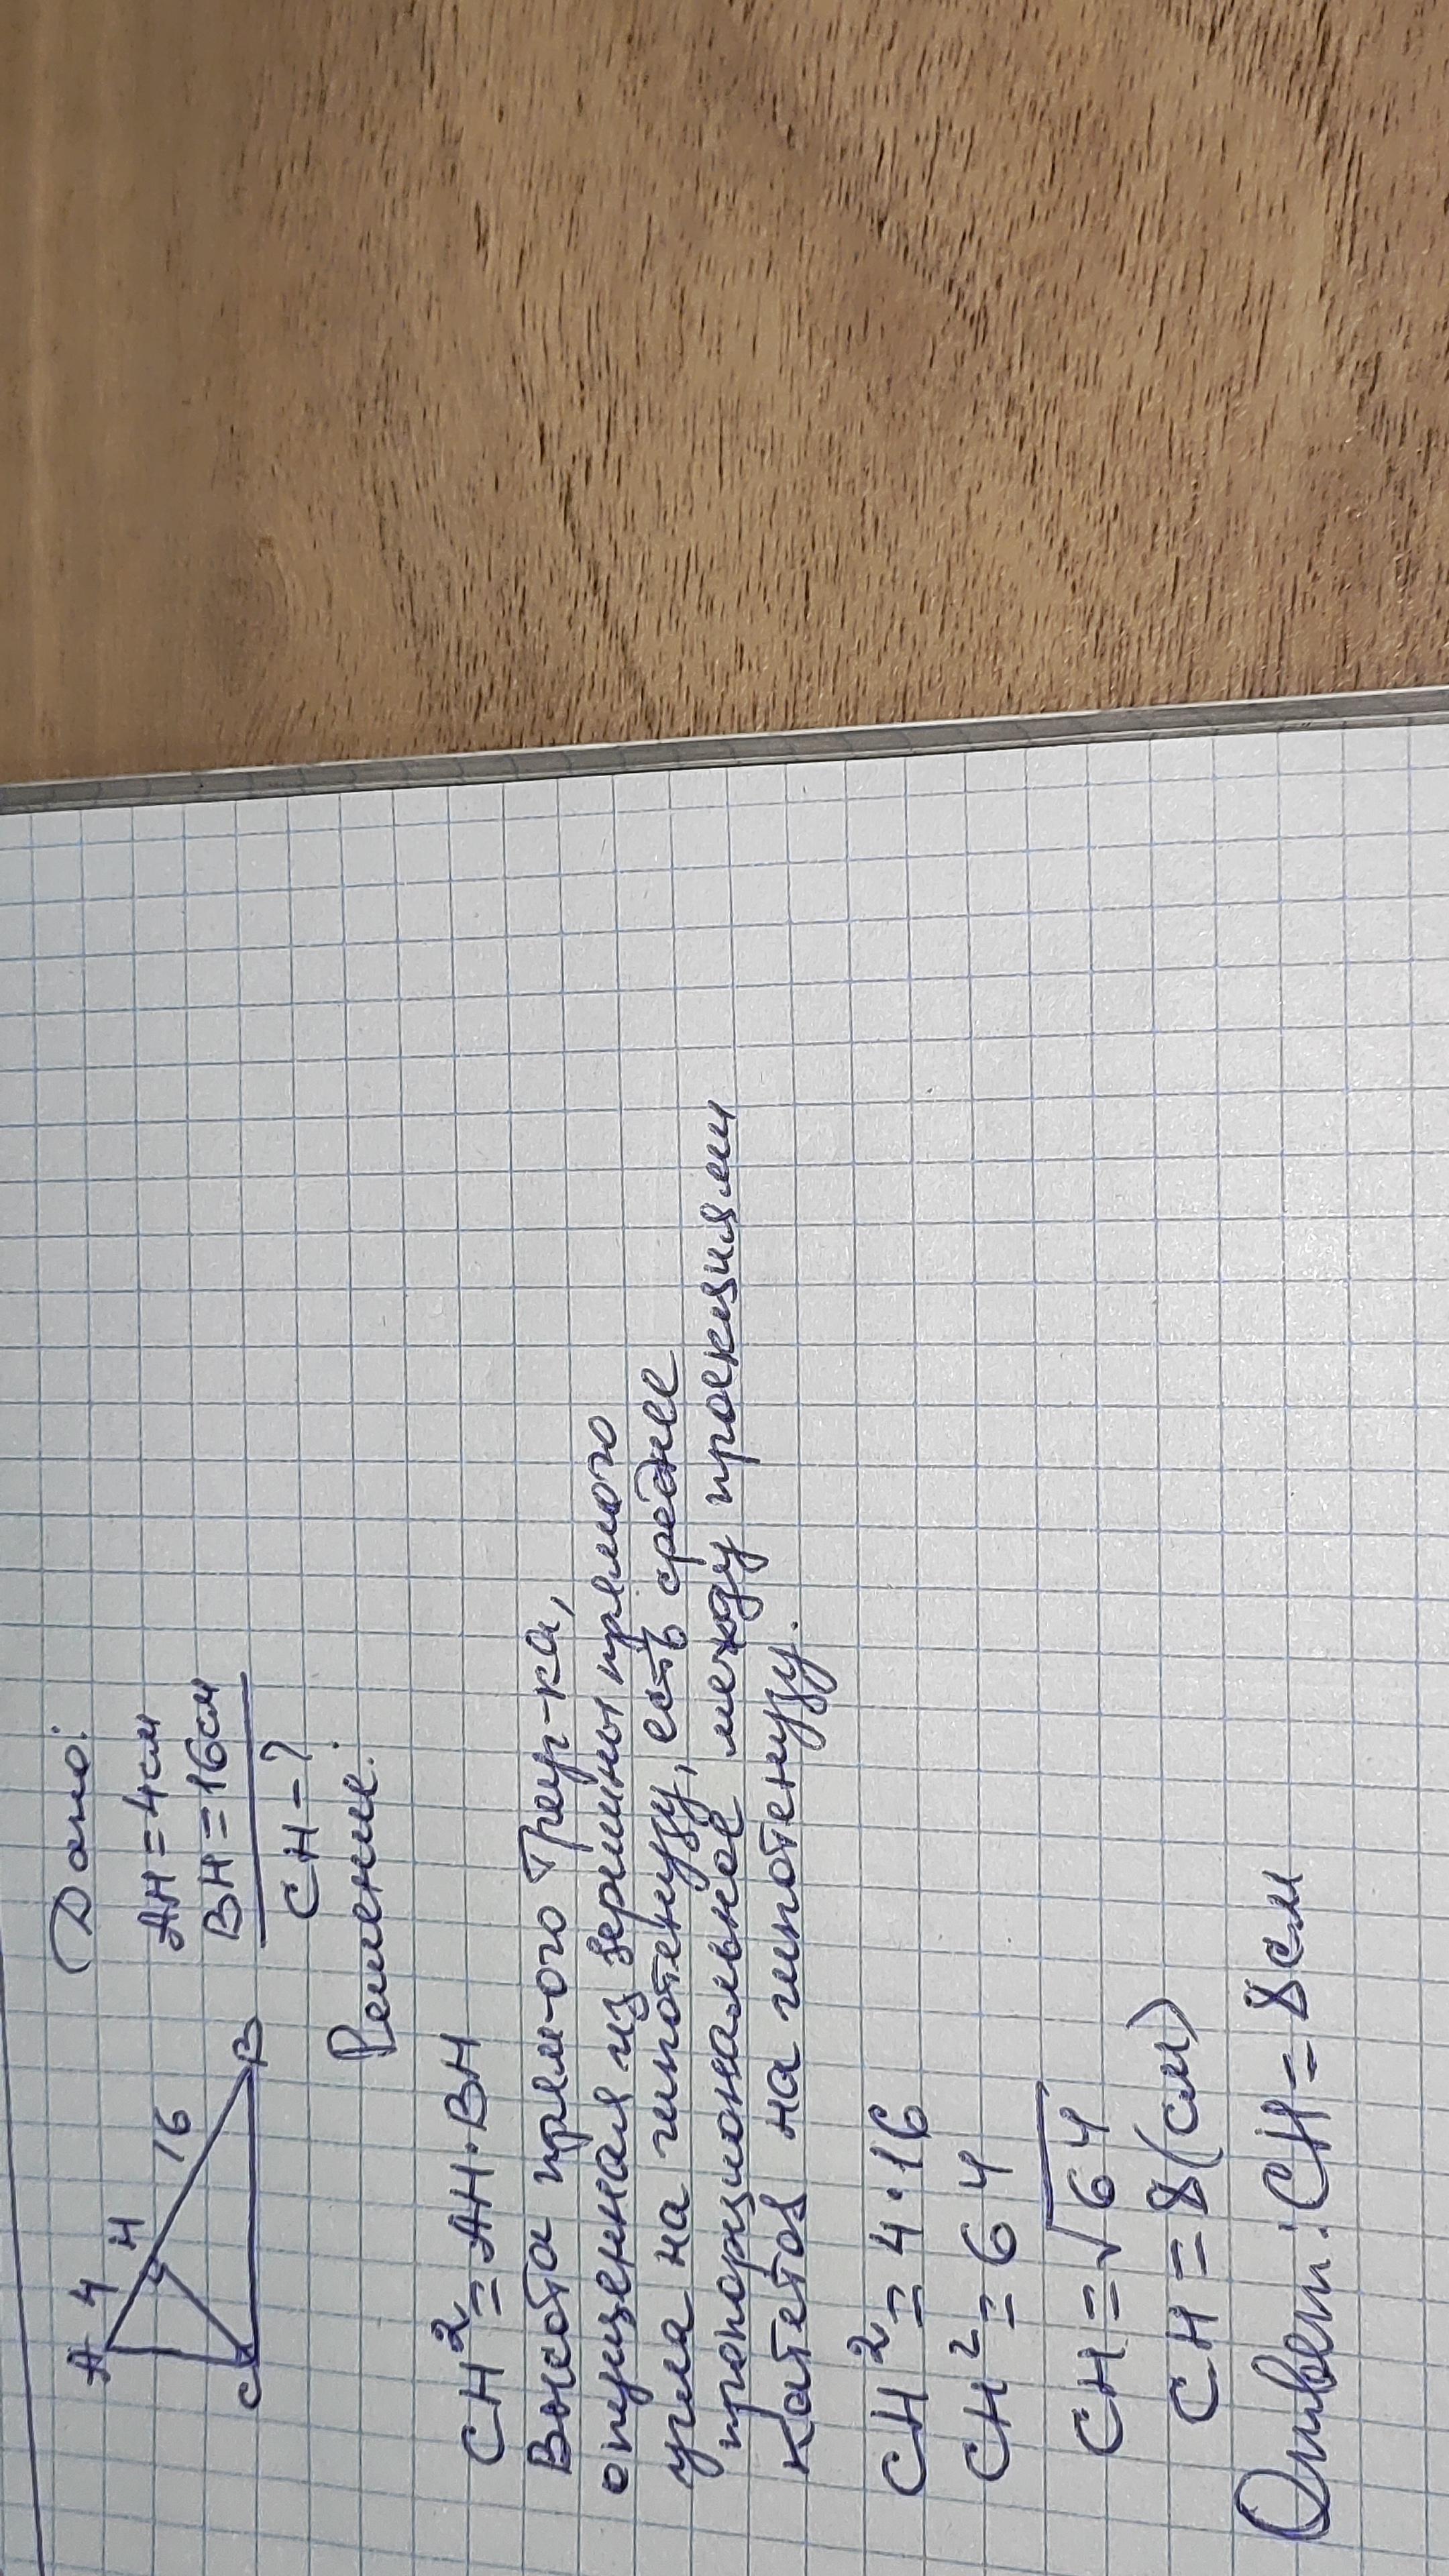 Дано:
A 4 H 16 B C
AH = 4 см
BH = 16 см
CH - ?
Решение:
CH² = AH · BH
Высота прям-ого треуг-ка,
опущенная из вершины прямого
угла на гипотенузу, есть среднее
пропорциональное между проекциями
катетов на гипотенузу.
CH² = 4 · 16
CH² = 64
CH = √64
CH = 8 (см)
Ответ: CH = 8 см